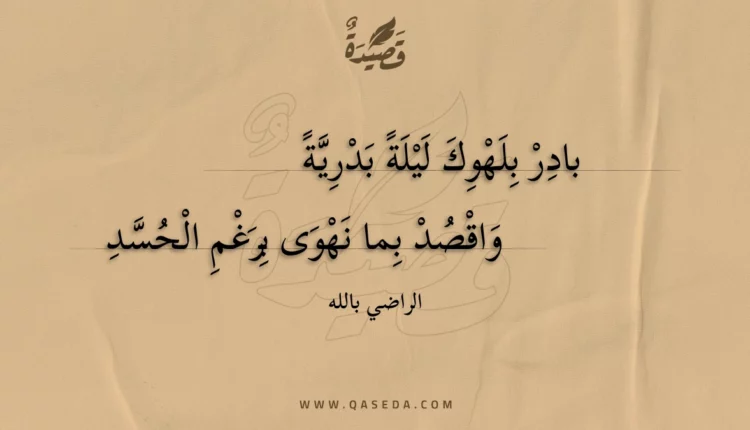 قَصِيدَةٌ
بادِرْ بِلَهْوِكَ لَيْلَةً بَدْرِيَّةً
وَاقْصُدْ بِما نَهْوَى بِرَغْمِ الْحُسَّدِ
الراضي بالله
WWW.QASEDA.COM